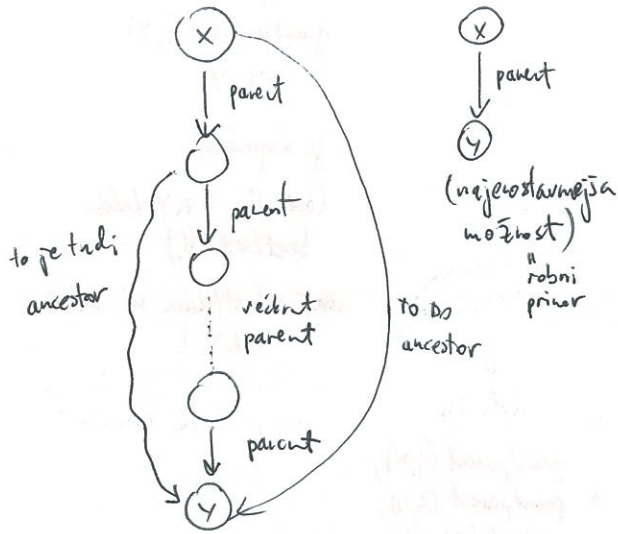 X
parent
parent
to je tudi
ancestor
večkrat
parent
parent
Y
TO DO
ancestor
X
parent
Y
(najenostavnejša
možnost)
"
robni
primer